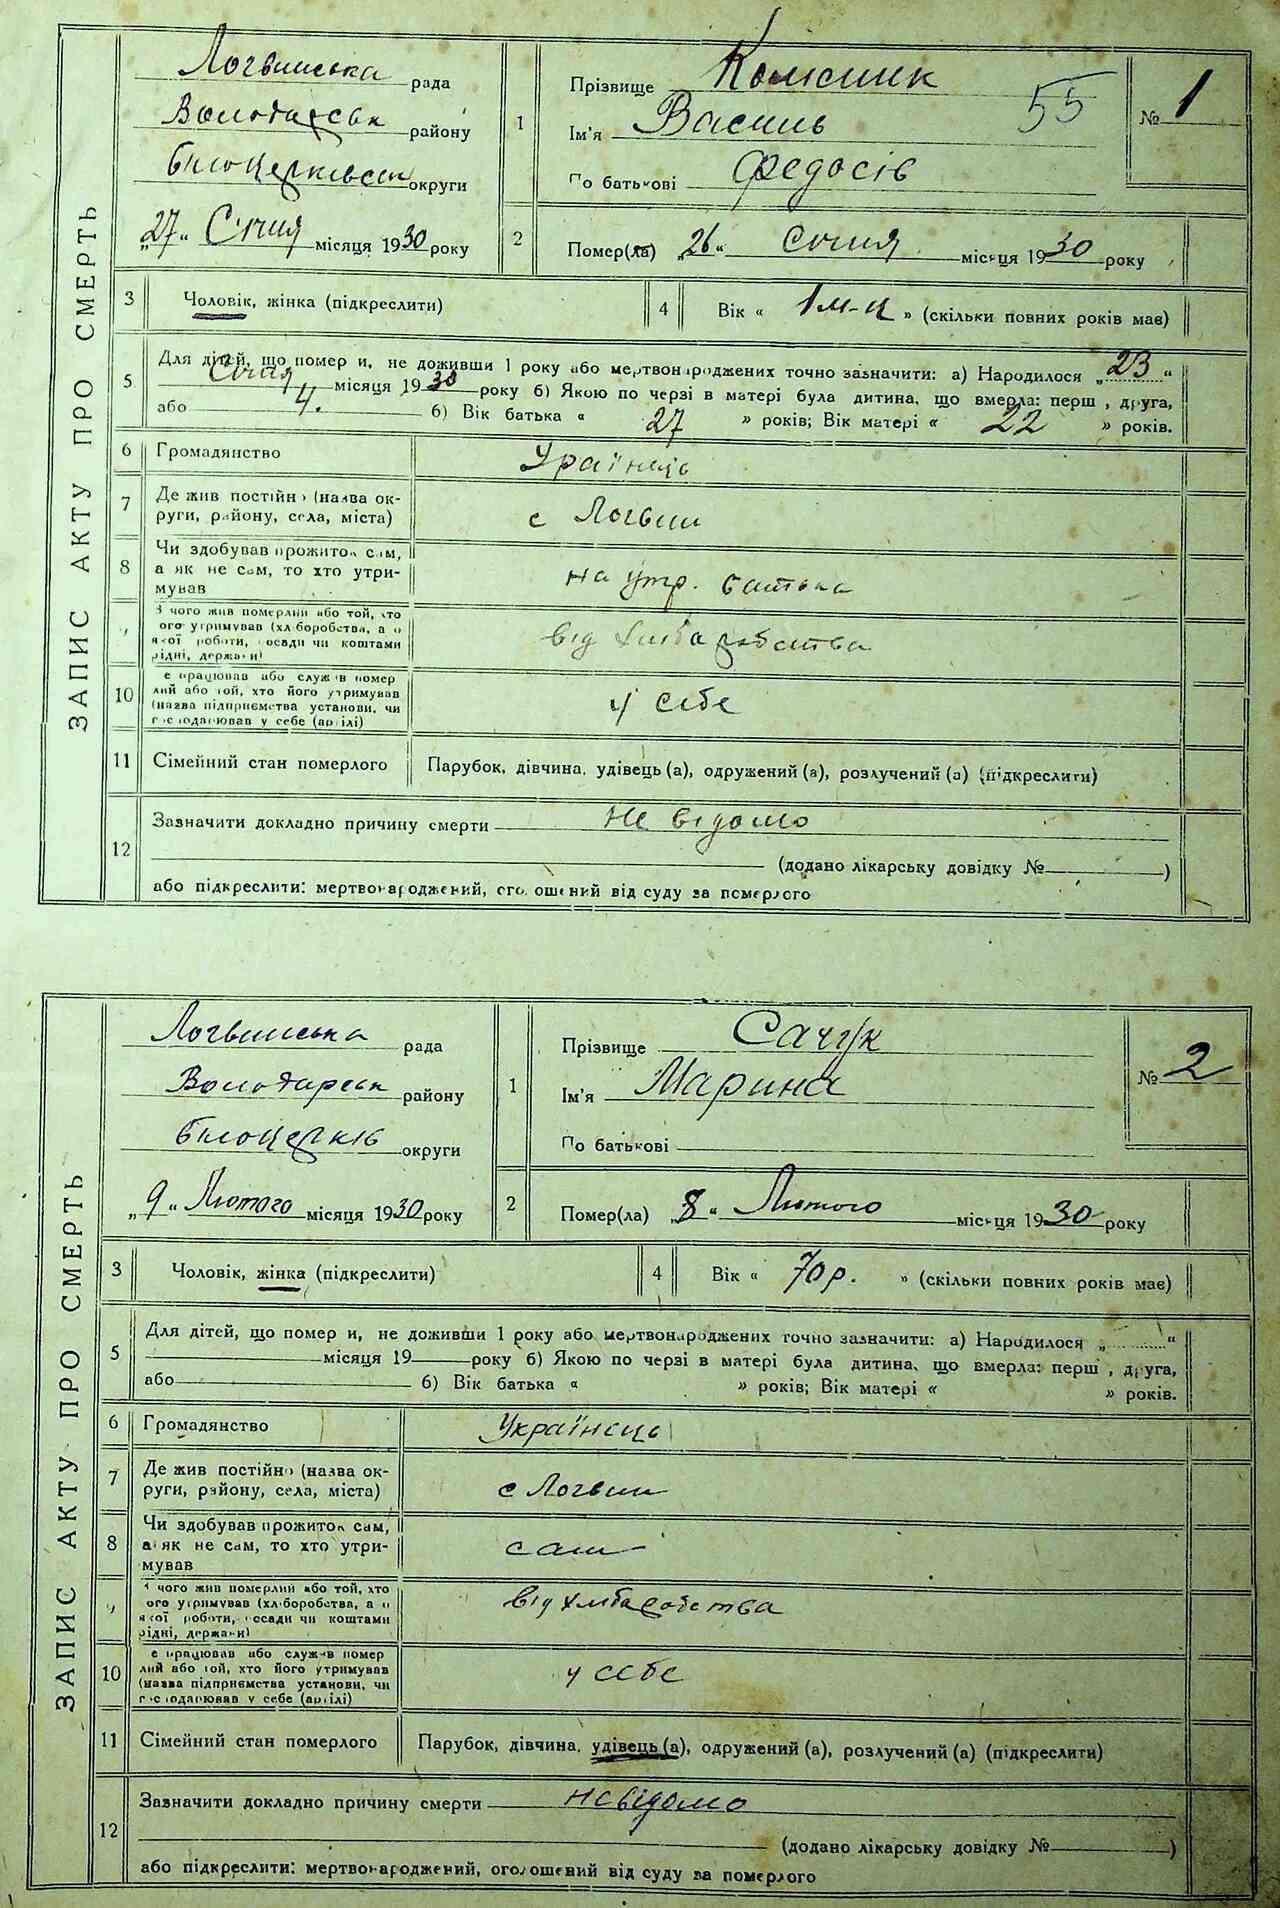 ЗАПИС АКТУ ПРО СМЕРТЬ
Логвинська рада
Володарськ району
білоцерківськ округи
„27“ Січня місяця 1930 року
1
Прізвище
Ім'я Василь
По батькові Федосів
55
№ 1
2
Помер(ла) „26“ січня місяця 1930 року
3 Чоловік, жінка (підкреслити)
4 Вік « 1 м-ц » (скільки повних років має)
5 Для дітей, що померли, не доживши 1 року або мертвонароджених точно зазначити: а) Народилося „23“
Січня місяця 1930 року б) Якою по черзі в матері була дитина, що вмерла: перша, друга,
або 4. б) Вік батька « 27 » років; Вік матері « 22 » років.
6 Громадянство Україінець
7 Де жив постійно (назва ок-
руги, району, села, міста) с Логвин
8 Чи здобував прожиток сам,
а як не сам, то хто утри-
мував на утр. батька
9 З чого жив померлий або той, хто
його утримував (хліборобства, а о
якої роботи, посади чи коштами
рідні, держави) від хліборобства
10 Де працював або служив помер
лий або той, хто його утримував
(назва підприємства установи, чи
господарював у себе (артілі) у себе
11 Сімейний стан померлого Парубок, дівчина, удівець(а), одружений(а), розлучений(а) (підкреслити)
12 Зазначити докладно причину смерти не відомо
(додано лікарську довідку № )
або підкреслити: мертвонароджений, оголошений від суду за померлого
ЗАПИС АКТУ ПРО СМЕРТЬ
Логвинська рада
Володарськ району
білоцерків округи
„9“ Лютого місяця 1930 року
1
Прізвище Сачук
Ім'я Марина
По батькові
№ 2
2
Помер(ла) „8“ Лютого місяця 1930 року
3 Чоловік, жінка (підкреслити)
4 Вік « 70 р. » (скільки повних років має)
5 Для дітей, що померли, не доживши 1 року або мертвонароджених точно зазначити: а) Народилося „ “
місяця 19 року б) Якою по черзі в матері була дитина, що вмерла: перша, друга,
або б) Вік батька « » років; Вік матері « » років.
6 Громадянство Українець
7 Де жив постійно (назва ок-
руги, району, села, міста) с Логвин
8 Чи здобував прожиток сам,
а як не сам, то хто утри-
мував сам
9 З чого жив померлий або той, хто
його утримував (хліборобства, а о
якої роботи, посади чи коштами
рідні, держави) від хліборобства
10 Де працював або служив помер
лий або той, хто його утримував
(назва підприємства установи, чи
господарював у себе (артілі) у себе
11 Сімейний стан померлого Парубок, дівчина, удівець(а), одружений(а), розлучений(а) (підкреслити)
12 Зазначити докладно причину смерти невідомо
(додано лікарську довідку № )
або підкреслити: мертвонароджений, оголошений від суду за померлого